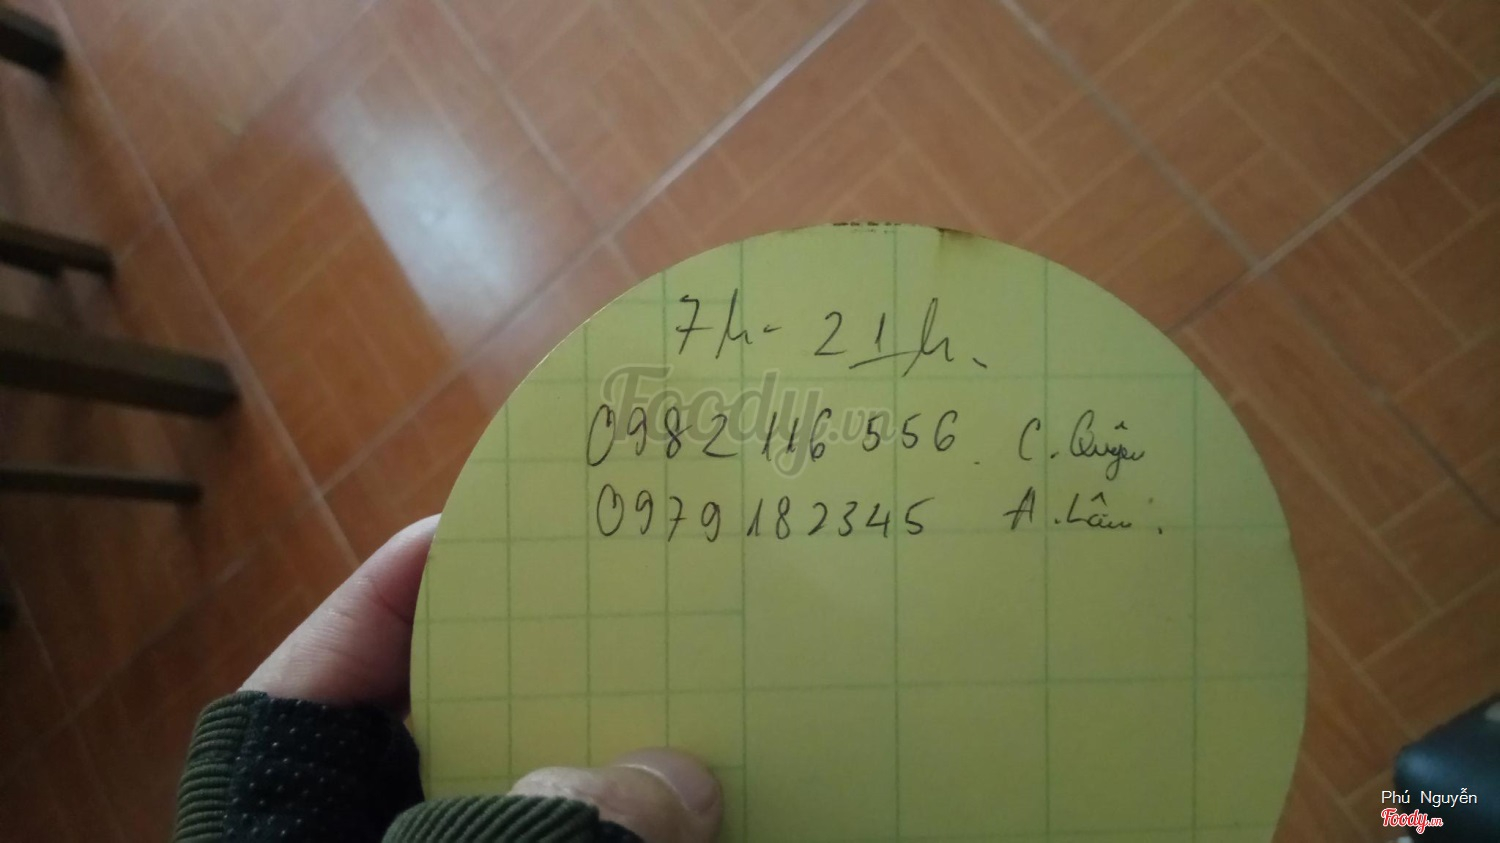 7h - 21h.
Foody.vn
0982 116 556. C. Quyên
0979 182345 A. Lâm.
Phú Nguyễn
Foody.vn